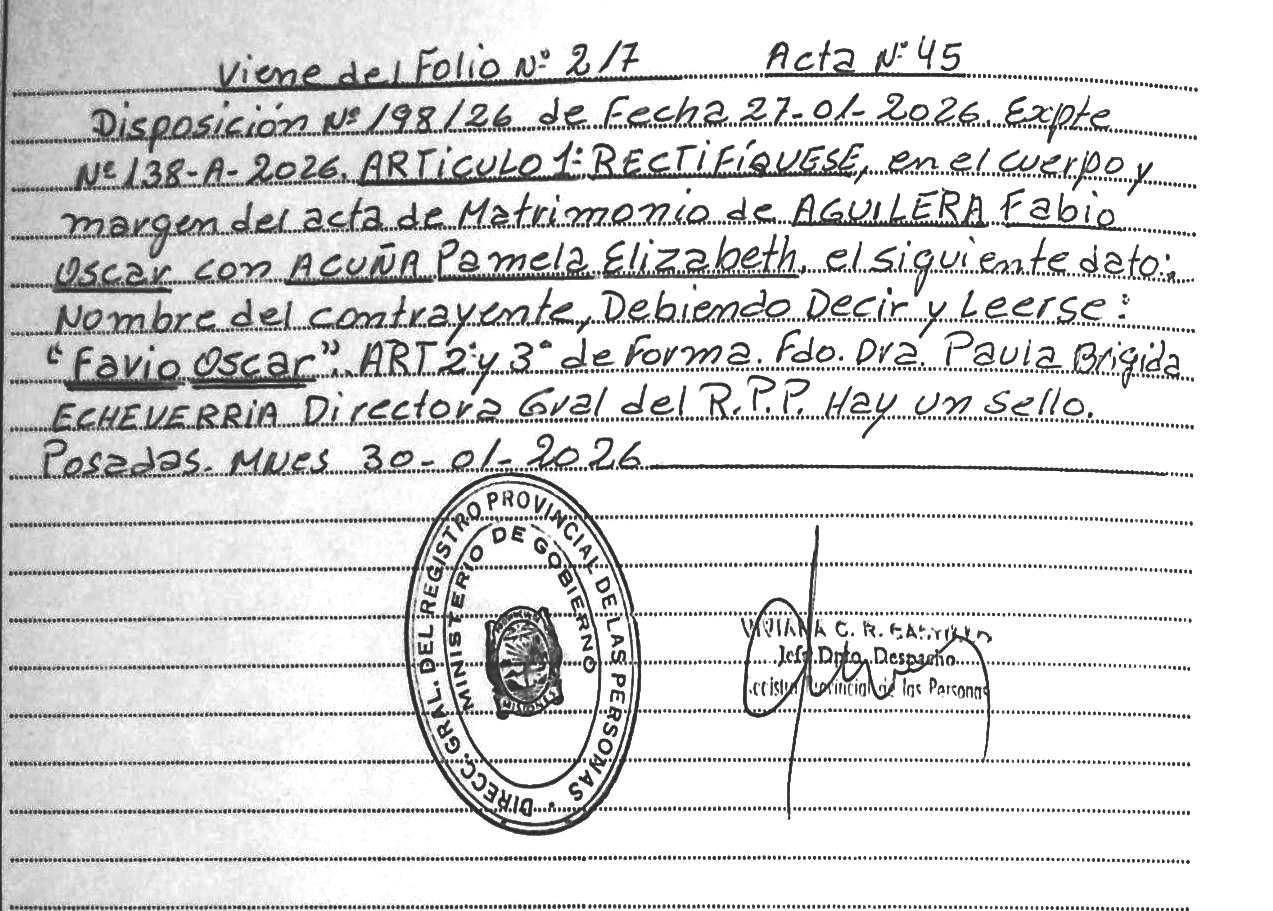 Viene del Folio Nº 217 Acta Nº 45
Disposición Nº 198/26 de Fecha 27-01-2026. Expte
Nº 138-A-2026. ARTICULO 1: RECTIFÍQUESE, en el cuerpo y
margen del acta de Matrimonio de AGUILERA Fabio
Oscar con ACUÑA Pamela Elizabeth, el siguiente dato:
Nombre del contrayente, Debiendo Decir y Leerse:
"Favio Oscar". ART 2º y 3º de Forma. Fdo. Dra. Paula Brigida
ECHEVERRIA Directora Gral del R.P.P. Hay un sello.
Posadas. MNes 30-01-2026
DIRECC. GRAL. DEL REGISTRO PROVINCIAL DE LAS PERSONAS
MINISTERIO DE GOBIERNO
VIVIANA C. R. CASTILLO
Jefe Dpto. Despacho
Provincial de las Personas